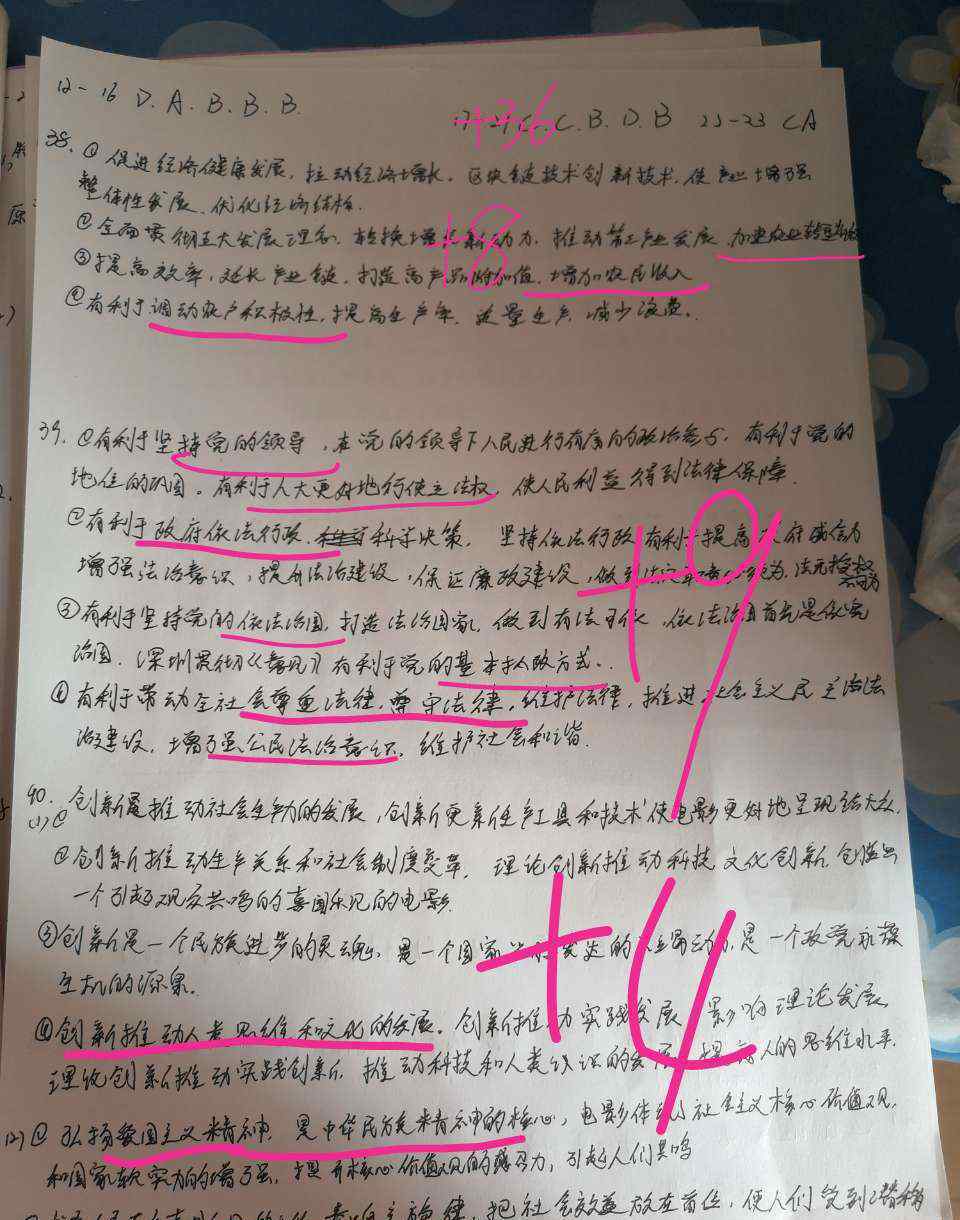 12-16 D.A.B.B.B.
+36 C.B.D.B 22-23 CA
38. ①促进经济健康发展,拉动经济增长。区块链技术创新技术,使产业增强
整体性发展,优化经济结构.
②全面贯彻五大发展理念,转换增长新动力,推动第三产业发展,加速农业转型
+8
③提高效率,延长产业链,打造高产品附加值,增加农民收入
④有利于调动农户积极性,提高生产率,定量生产,减少浪费.
39. ①有利于坚持党的领导,在党的领导下人民进行有序的政治参与,有利于党的
地位的巩固。有利于人大更好地行使立法权,使人民利益得到法律保障.
②有利于政府依法行政,科学决策。坚持依法行政有利于提高政府威信力
增强法治意识,提升法治建设,保证廉政建设,做到法定 为,法无授权
不可为
+9
③有利于坚持党的依法治国,打造法治国家,做到有法可依,依法治国首先是依宪
治国.深圳贯彻《意见》有利于党的基本执政方式.
④有利于带动全社会尊重法律,遵守法律,维护法律,推进社会主义民主法
治建设,增强公民法治意识,维护社会和谐.
40.
(1)①创新是推动社会生产力的发展,创新更新生产工具和技术,使电影更好地呈现给大众
②创新推动生产关系和社会制度变革,理论创新推动科技文化创新,创造出
一个引起观众共鸣的喜闻乐见的电影.
③创新是一个民族进步的灵魂,是一个国家 发达的不竭动力,是一个政党永葆
生机的源泉.
+4
④创新推动人类思维和文化的发展。创新推动实践发展,影响理论发展
理论创新推动实践创新,推动科技和人类认识的发展,提高人的思维水平.
(2)①弘扬爱国主义精神,是中华民族精神的核心,电影体现社会主义核心价值观.
和国家软实力的增强,提升核心价值观的感召力,引起人们共鸣
主旋律,把社会效益放在首位,使人们